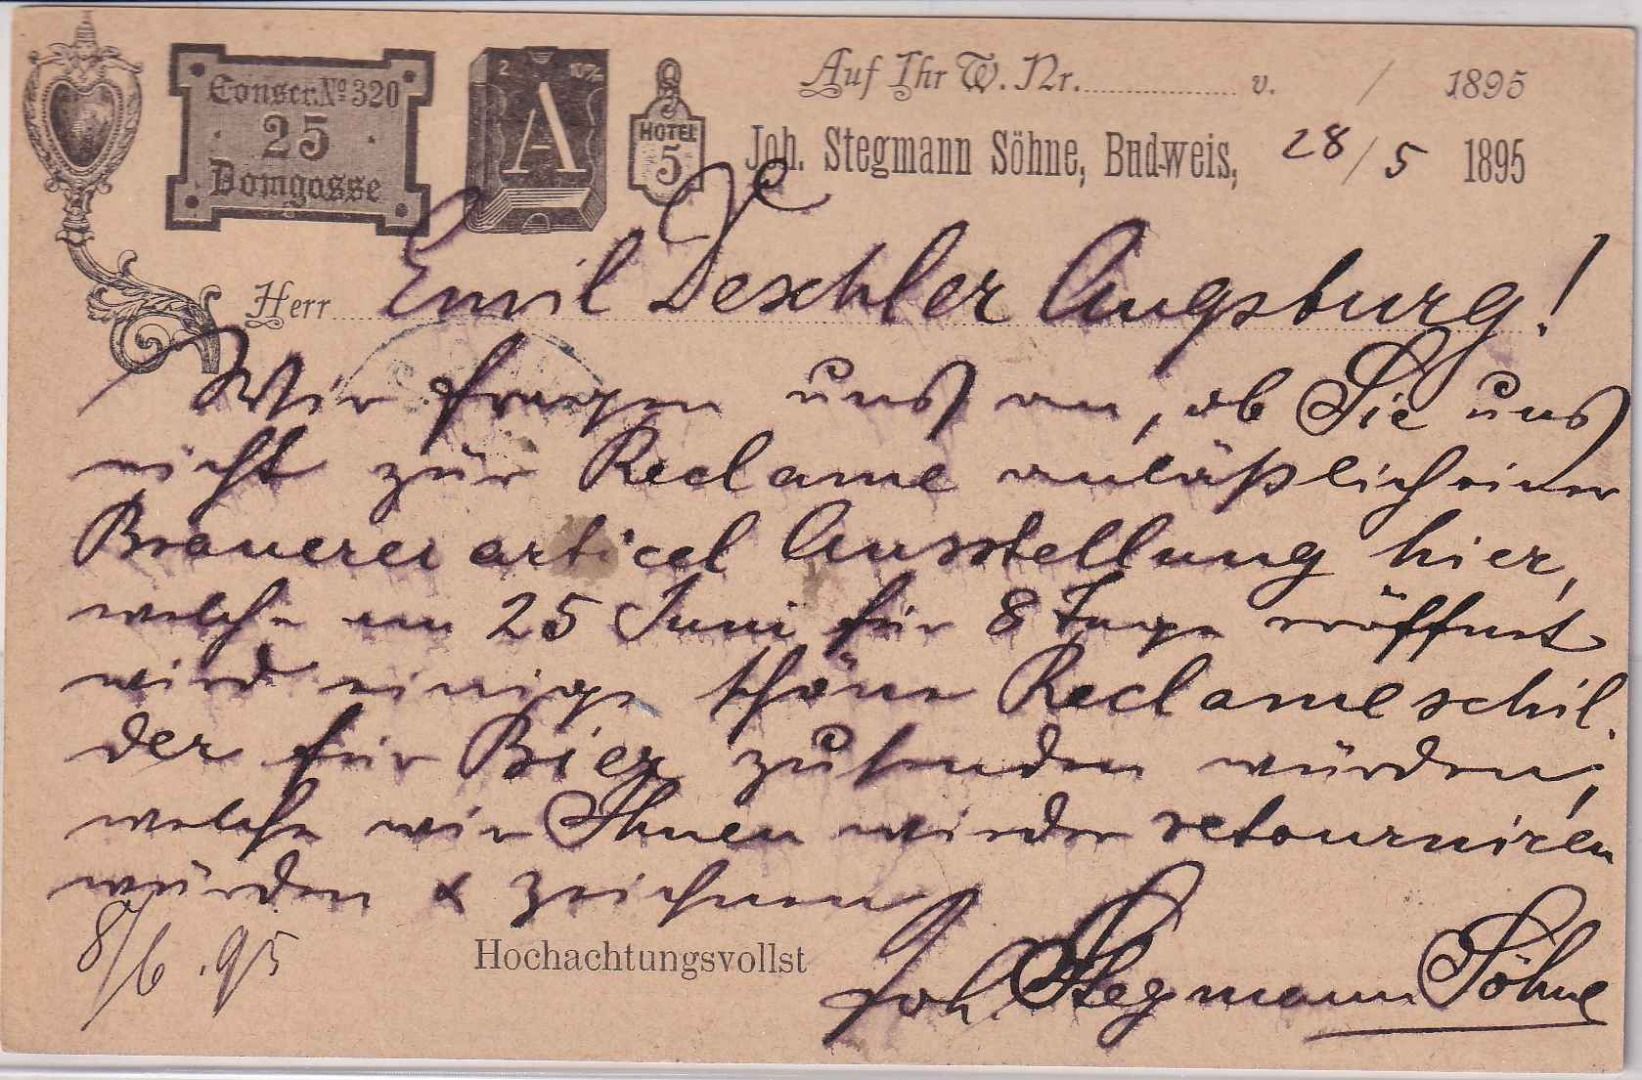 Conscr. Nº 320
25
Domgasse
2 10%
A
HOTEL
5
Auf Ihr W. Nr. v. / 1895
Joh. Stegmann Söhne, Budweis, 28/5 1895
Herr Emil Deschler Augsburg!
Wir fragen uns an, ob Sie uns
nicht zur Reclame anläßlich einer
Brauereiarticel Ausstellung hier,
welche am 25 Juni für 8 Tage eröffnet
wird einige schöne Reclameschil
der für Bier zusenden würden,
welche wir Ihnen wieder retourniren
würden & zeichnen
8/6.95
Hochachtungsvollst
Joh. Stegmann Söhne